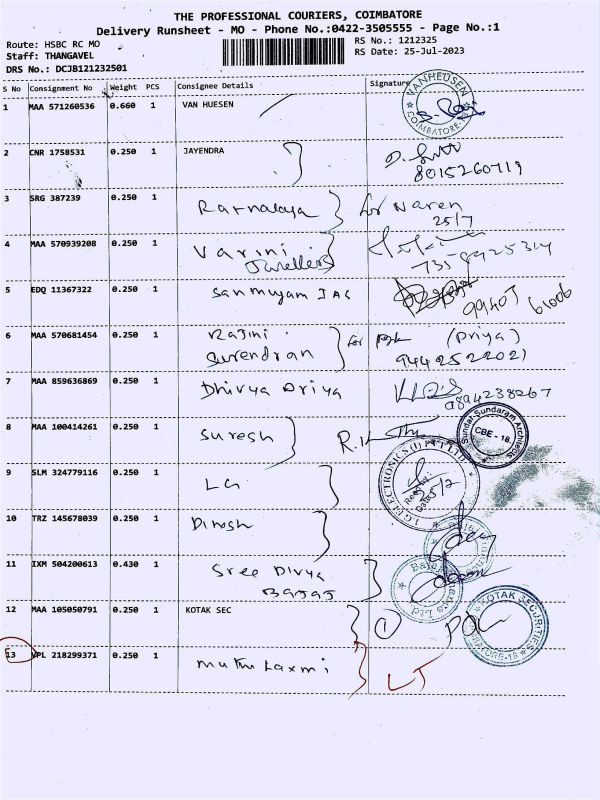 THE PROFESSIONAL COURIERS, COIMBATORE
Delivery Runsheet - MO - Phone No.:0422-3505555 - Page No.:1
Route: HSBC RC MO
RS No.: 1212325
Staff: THANGAVEL
RS Date: 25-Jul-2023
DRS No.: DCJB121232501
S No Consignment No Weight PCS Consignee Details Signature
1 MAA 571260536 0.660 1 VAN HUESEN
VANHEUSEN
COIMBATORE
2 CNR 1758531 0.250 1 JAYENDRA
8015260719
3 SRG 387239 0.250 1 Ratnalaya for Naren
25/7
4 MAA 570939208 0.250 1 Varini
Jwellers
5 EDQ 11367322 0.250 1 Sanmugam IAS
6 MAA 570681454 0.250 1 Rajini for (Priya)
Surendran 9442522021
7 MAA 859636869 0.250 1 Dhivya Priya
9894238267
8 MAA 100414261 0.250 1 Suresh
Sundar Sundaram Architects
CBE - 18.
9 SLM 324779116 0.250 1 LG
LG ELECTRONICS (I) PVT LTD
10 TRZ 145678039 0.250 1 Dinesh
11 IXM 504200613 0.430 1 Sree Divya
Bajaj
12 MAA 105050791 0.250 1 KOTAK SEC
KOTAK SECURITIES
13 VPL 218299371 0.250 1 Muthu Laxmi LT